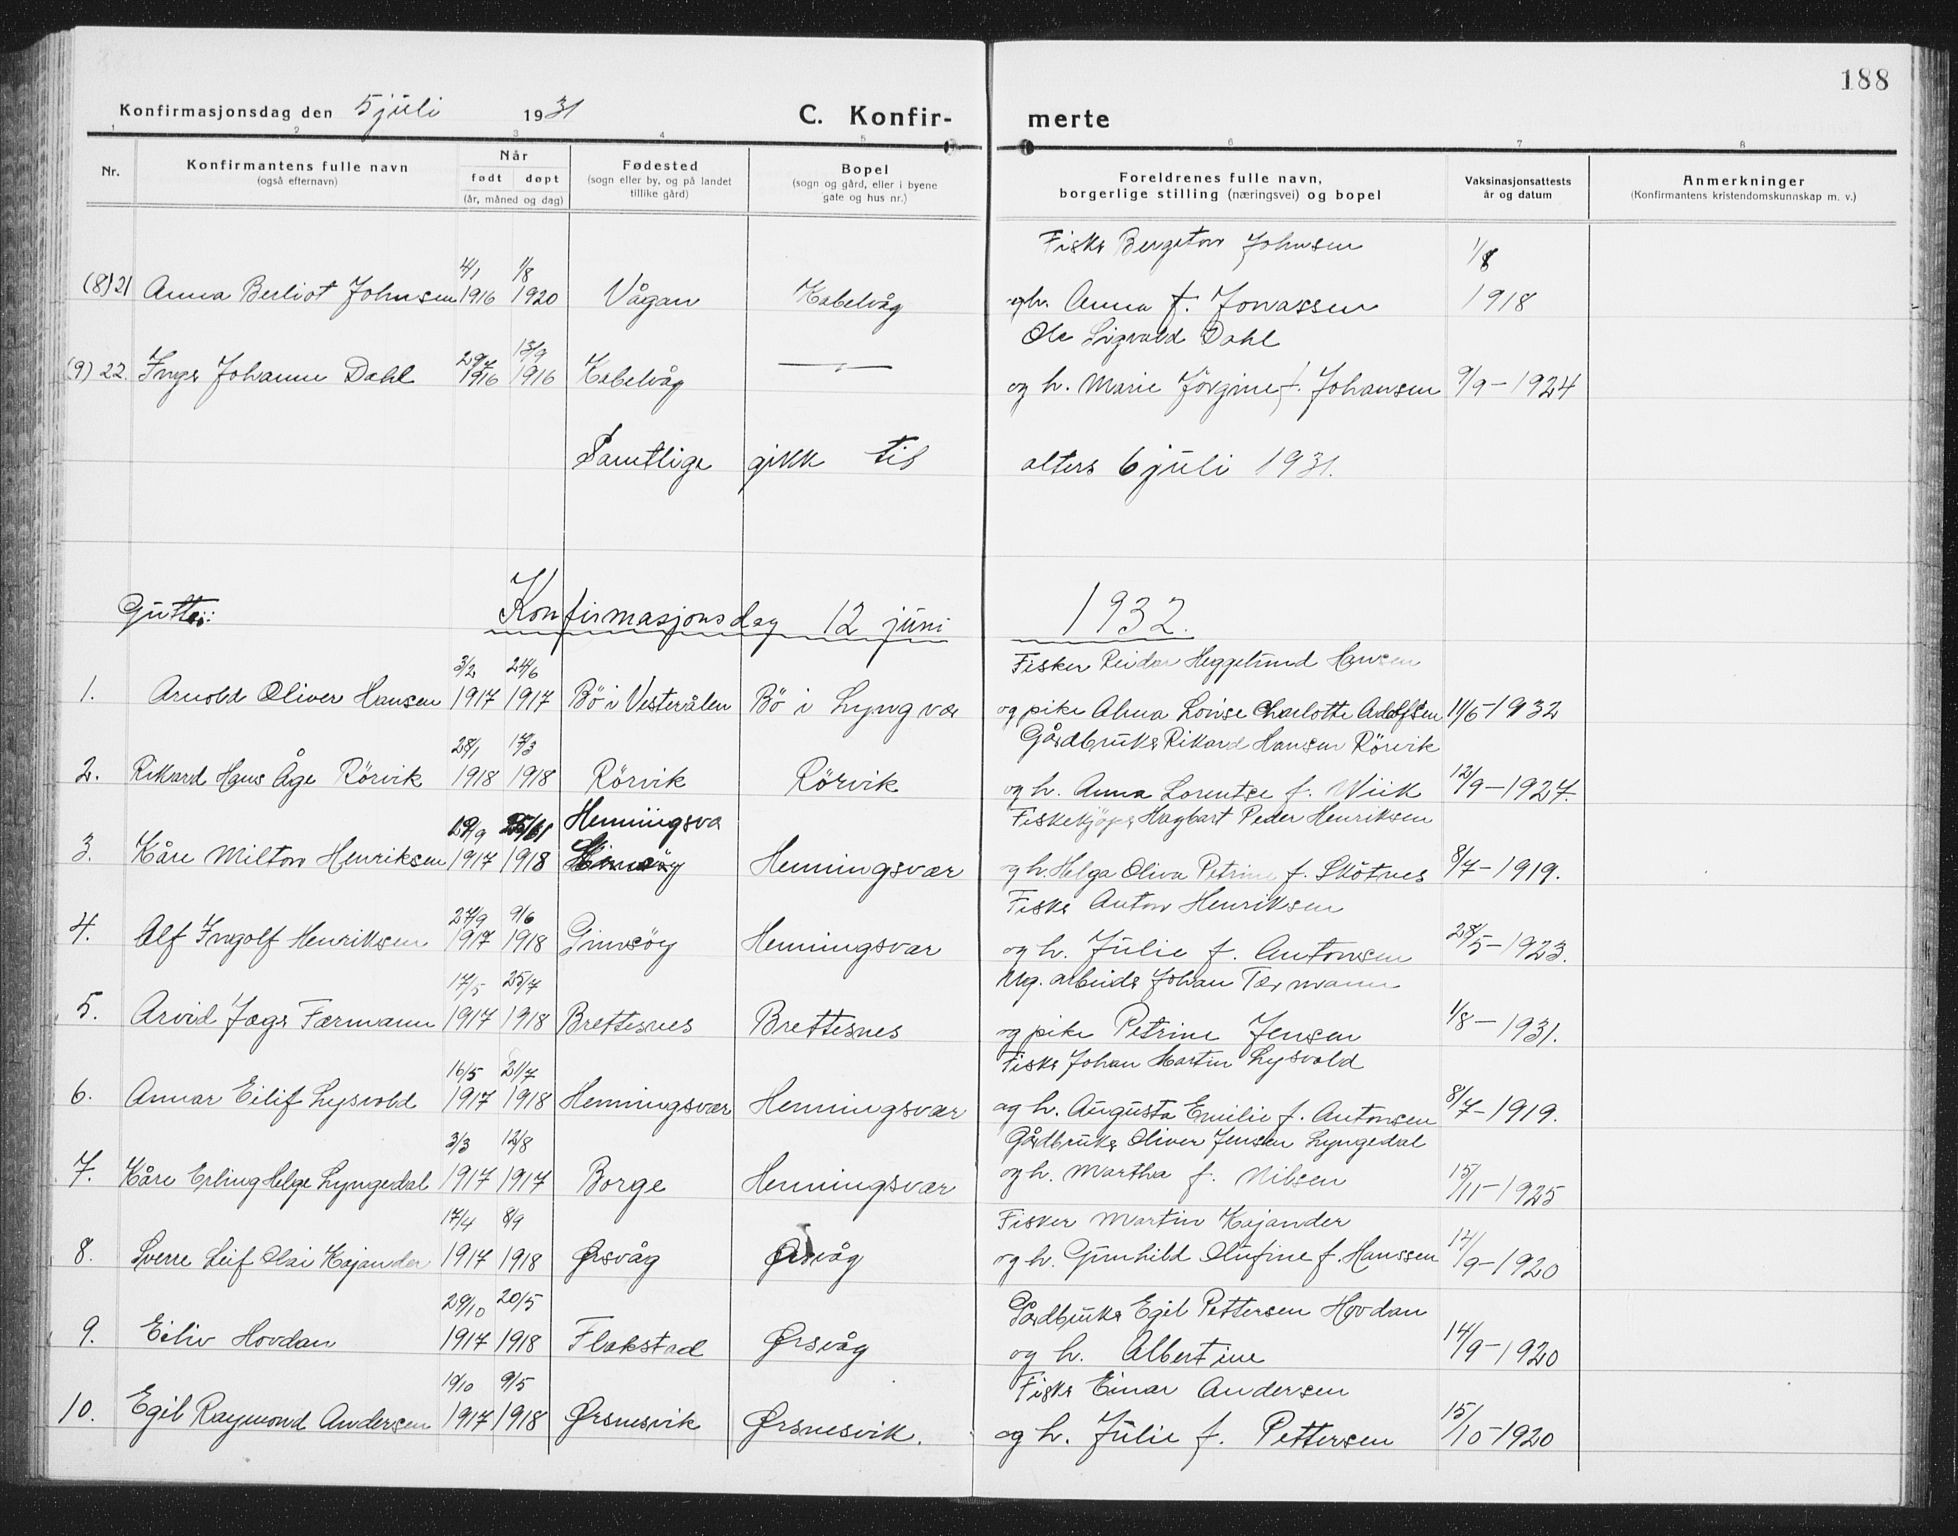 188
Konfirmasjonsdag den 5 juli 1931 C. Konfir- merte
1 2 3 4 5 6 7 8
Nr. Konfirmantens fulle navn (også efternavn) Når født døpt (år, måned og dag) Fødested (sogn eller by, og på landet tillike gård) Bopel (sogn og gård, eller i byene gate og hus nr.) Foreldrenes fulle navn, borgerlige stilling (næringsvei) og bopel Vaksinasjonsattests år og datum Anmerkninger (Konfirmantens kristendomskunnskap m. v.)
4/1 1/8 Fisker Bergeton Johnsen 1/8
(8) 21 Anna Berliot Johnsen 1916 1920 Vågan Kabelvåg og h. Anna f. Jonassen 1918
29/7 13/9 Ole Sigvald Dahl
(9) 22. Inger Johanne Dahl 1916 1916 Kabelvåg — " — og h. Marie Jörgine f. Johansen 9/9 - 1924
Samtlige gikk til alters 6 juli 1931.
Gutter: Konfirmasjonsdag 12 juni 1932.
3/2 24/6 Fisker Reidar Heggelund Hansen
1. Arnold Oliver Hansen 1917 1917 Bö i Vesterålen Bö i Lyngvær og pike Alma Lovise Charlotte Adolfsen 11/6 - 1932
28/1 17/3 Gårdbruker Rikard Hansen Rörvik
2. Rikard Hans Åge Rörvik 1918 1918 Rörvik Rörvik og h. Anna Lorentse f. Wiik 12/9 - 1927.
29/9 Henningsvæ Fiskekjöper Hagbart Peder Henriksen
3. Kåre Milton Henriksen 1917 1918 Henningsvær og h. Helga Oliva Petrine f. Skötnes 8/7 - 1919.
27/9 9/6 Fisker Anton Henriksen
4. Alf Ingolf Henriksen 1917 1918 Gimsöy Henningsvær og h. Julie f. Antonsen 28/5 - 1923.
17/5 25/7 Ug. arbeider Johan Færmann
5. Arvid Jæger Færmann 1917 1918 Brettesnes Brettesnes og pike Petrine Jensen 1/8 - 1931.
16/5 21/7 Fisker Johan Martin Lysvold
6. Annar Eilif Lysvold 1917 1918 Henningsvær Henningsvær og h. Augusta Emilie f. Antonsen 8/7 - 1919.
3/3 12/8 Gårdbruker Oliver Jensen Lyngedal
7. Kåre Erling Helge Lyngedal 1917 1917 Borge Henningsvær og h. Martha f. Nilsen 15/11 - 1925
17/4 8/9 Fisker Martin Kajander
8. Sverre Leif Olai Kajander 1917 1918 Ørsvåg Ørsvåg og h. Gunhild Olufine f. Hanssen 14/9 - 1920
29/10 20/5 Gårdbruker Egil Pettersen Hovdan
9. Eiliv Hovdan 1917 1918 Flakstad Ørsvåg og h. Albertine 14/9 - 1920
19/10 9/5 Fisker Einar Andersen
10. Egil Raymond Andersen 1917 1918 Ørsnesvik Ørsnesvik. og h. Julie f. Pettersen 15/10 - 1920